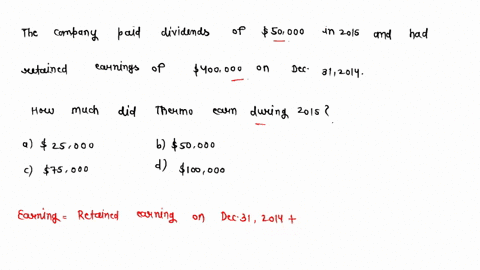 The company paid dividends of $50,000 in 2015 and had
retained earnings of $400,000 on Dec. 31, 2014.
How much did Thermo earn during 2015?
a) $25,000 b) $50,000
c) $75,000 d) $100,000
Earning = Retained earning on Dec. 31, 2014 +